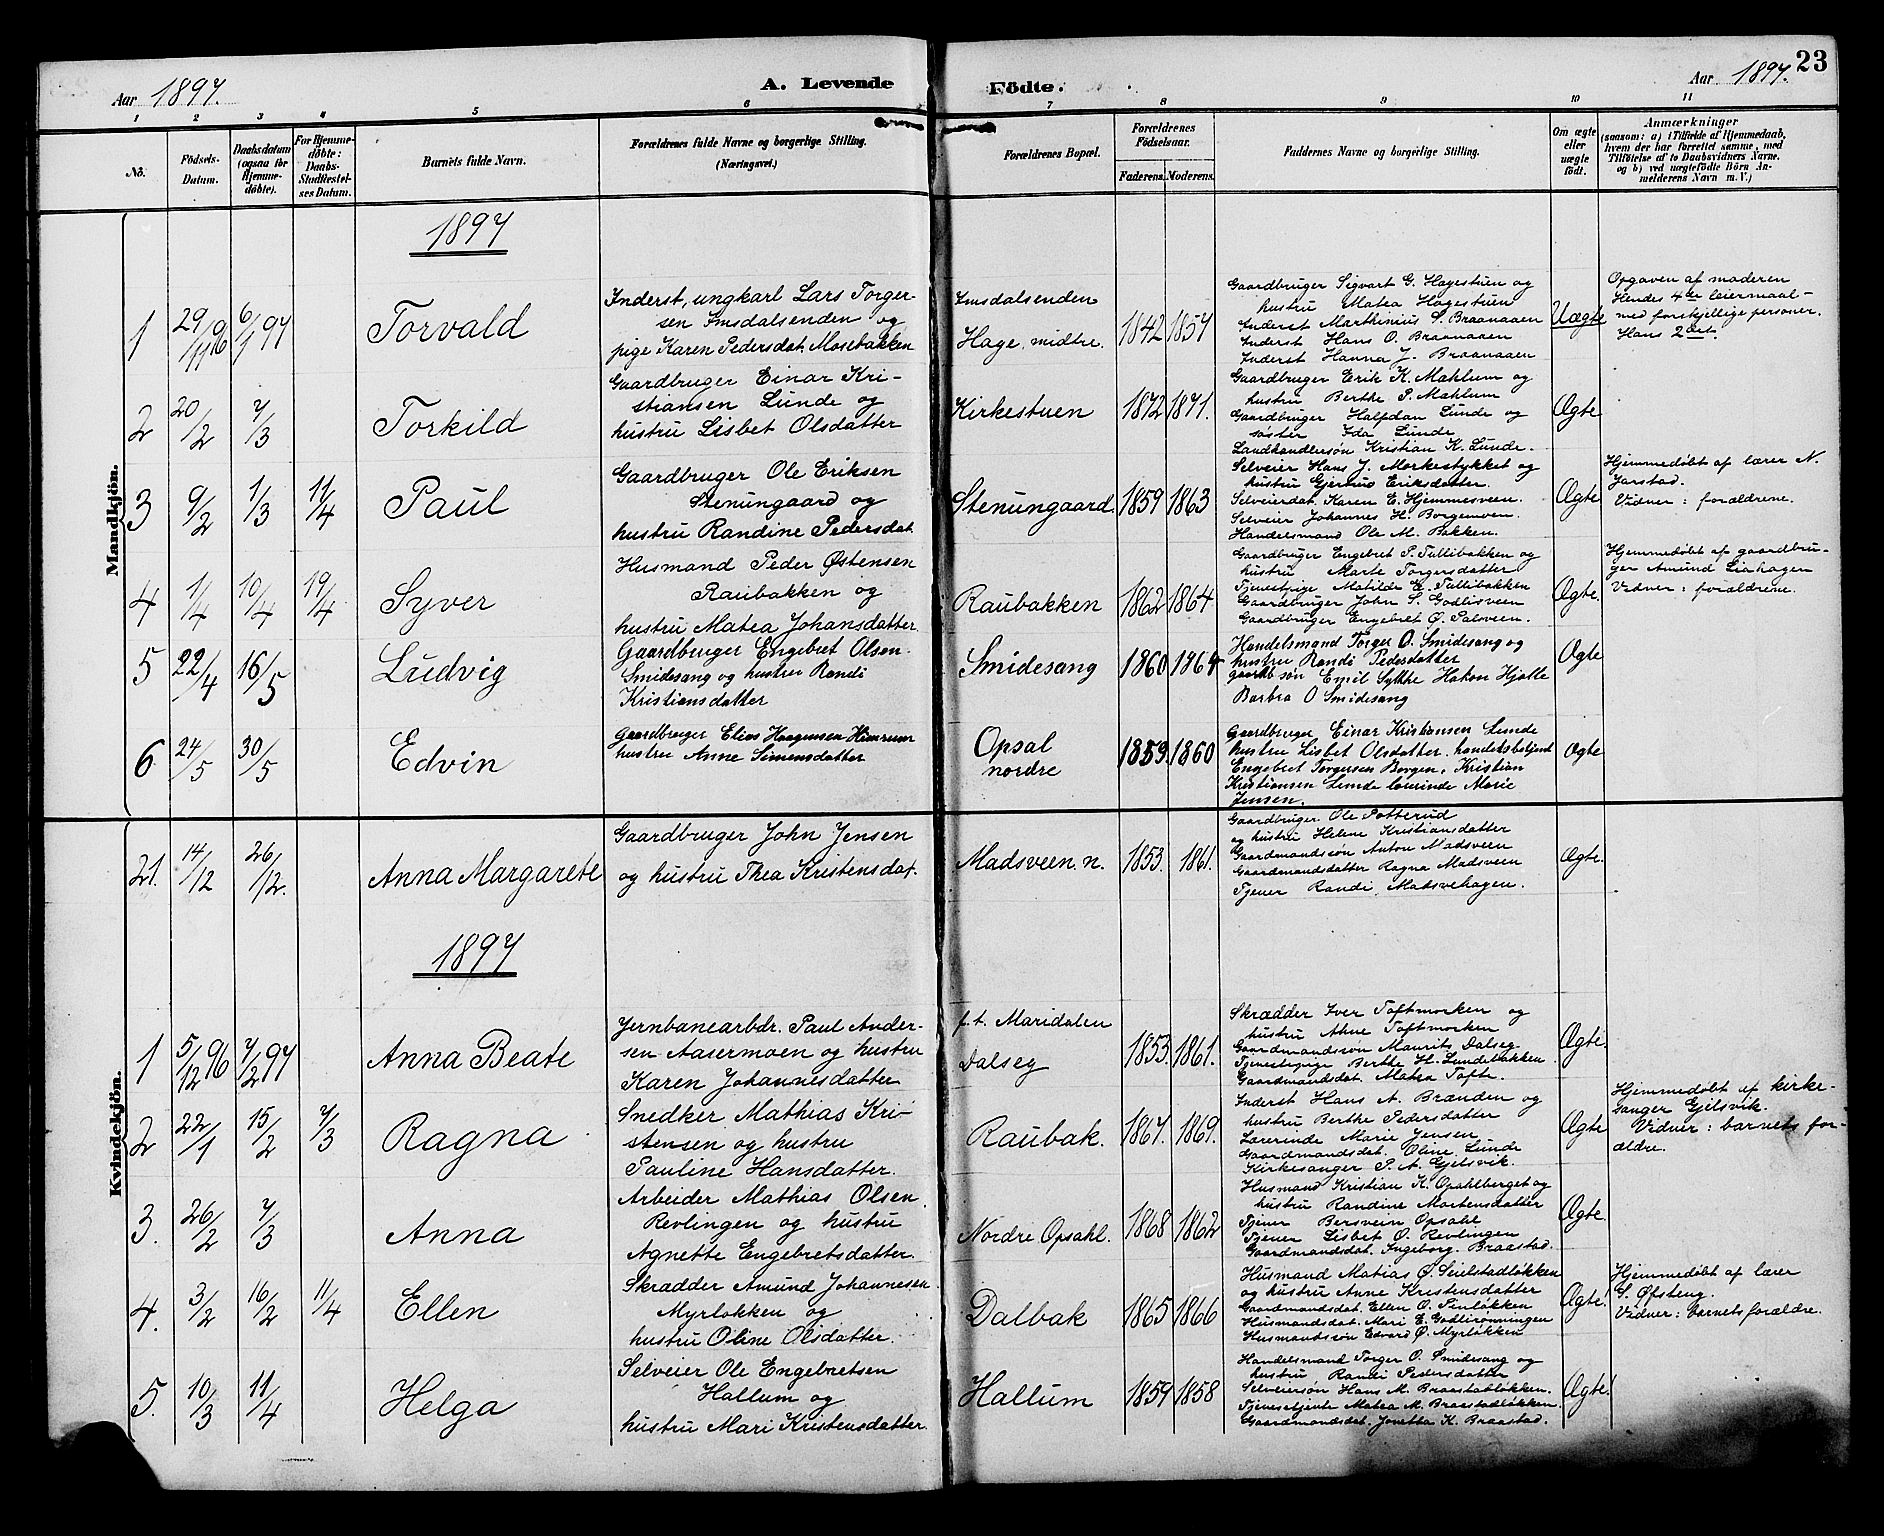 23
Aar 1897.
A. Levende Födte.
Aar 1897.
1 2 3 4 5 6 7 8 9 10 11
No.
Födsels-Datum.
Daabsdatum (ogsaa for Hjemme-döbte).
For Hjemme-döbte: Daabs-Stadfæstel-ses Datum.
Barnets fulde Navn.
Forældrenes fulde Navne og borgerlige Stilling. (Næringsvei.)
Forældrenes Bopæl.
Forældrenes Födselsaar.
Faderens. Moderens.
Faddernes Navne og borgerlige Stilling.
Om ægte eller uægte födt.
Anmærkninger
(saasom: a) i Tilfælde af Hjemmedaab, hvem der har forrettet samme, med Tilföielse af to Daabsvidners Navne. og b) ved uægtefödte Börn An-melderens Navn m. V.)
Mandkjön.
1897
1 29/11 96 6/1 97 Torvald
Inderst, ungkarl Lars Torger-
sen Imsdalsenden og
pige Karen Pedersdat. Mosebakken
Imsdalsenden
Hage, midtre.
1842 1857
Gaardbruger Sigvart G. Hagestuen og
hustru Matea Hagestuen
Inderst Marthinius S. Braanaaen
Inderst Hans O. Braanaaen
Inderst Hanna J. Braanaaen
Uægte
Opgaven af moderen
Hendes 4de leiermaal-
med forskjellige personer.
Hans 2det.
2 20/2 7/3 Torkild
Gaardbruger Einar Kri-
stiansen Lunde og
hustru Lisbet Olsdatter
Kirkestuen
1872 1871.
Gaardbruger Erik K. Mæhlum og
hustru Berthe P. Mæhlum
Gaardbruger Halfdan Lunde og
søster Ida Lunde
Landhandlersøn Kristian K. Lunde.
Ægte
3 9/2 1/3 11/4 Paul
Gaardbruger Ole Eriksen
Stenungaard og
hustru Randine Pedersdat.
Stenungaard.
1859 1863
Selveier Hans J. Morkestykket og
hustru Gjertrud Eriksdatter.
Selveierdat. Karen E. Hjemmesveen.
Selveier Johannes H. Borgenven.
Handelsmand Ole M. Bakken.
Ægte
Hjemmedøbt af lærer N.
Jarstad.
Vidner: forældrene.
4 1/4 10/4 19/4 Syver
Husmand Peder Østensen
Raubakken og
hustru Matea Johansdatter.
Raubakken
1862 1864
Gaardbruger Engebret P. Tullibakken og
hustru Marte Torgersdatter
Tjenestpige Matilde E. Tullibakken
Gaardbruger John S. Godlisveen
Gaardbruger Engebret Ø. Salsveen.
Ægte.
Hjemmedøbt af gaardbru-
ger Amund Liahagen
Vidner: forældrene.
5 22/4 16/5 Ludvig
Gaardbruger Engebret Olsen
Smidesang og hustru Randi
Kristiansdatter
Smidesang
1860 1864
Handelsmand Torger O. Smidesang og
hustru Randi Pedersdatter
gaardb søn Emil Sylthe Hakon Hjelle
Barbra O Smidesang
Ægte
6 24/5 30/5 Edvin
Gaardbruger Elias Haagensen Himrum
hustru Anne Simensdatter
Opsal
nordre
1859. 1860
Gaardbruger Einar Kristiansen Lunde
hustru Lisbet Olsdatter, handelsbetjent
Engebret Torgersen Borgen, Kristian
Kristiansen Lunde lærerinde Marie
Jensen.
Ægte
Kvindekjön.
21. 14/12 26/12. Anna Margarete
Gaardbruger John Jensen
og hustru Thea Kristensdat.
Madsveen. n.
1853. 1861.
Gaardbruger Ole Potterud
og hustru Helene Kristiansdatter
Gaardmandssøn Anton Madsveen
Gaardmandsdatter Ragna Madsveen
Tjener Randi Madsvehagen.
Ægte.
1897
1 5/12 96 7/2 97 Anna Beate
Jernbanearbdr. Paul Ander-
sen Aasermoen og hustru
Karen Johannesdatter
f.t. Maridalen
Dalseg
1853. 1861.
Skrædder Iver Toftmorken og
hustru Ahne Toftmorken
Gaardmandssøn Maurits Dalseg
Tjenestepige Berthe H. Lundebakken
Gaardmandsdat. Matea Tofte.
Ægte.
2 22/1 15/2 7/3 Ragna
Snedker Mathias Kri-
stensen og hustru
Pauline Hansdatter.
Raubak.
1867. 1869.
Inderst Hans A. Brænden og
hustru Berthe Pedersdatter
Lærerinde Marie Jensen
Gaardmandsdat. Oline Lunde
Kirkesanger P. A. Gjelsvik.
Ægte
Hjemmedøbt af kirke-
sanger Gjelsvik.
Vidner: barnets for-
ældre.
3. 26/2 7/3 Anna
Arbeider Mathias Olsen
Revlingen og hustru
Agnette Engebretsdatter.
Nordre Opsahl.
1868 1862
Husmand Kristian K. Opahlberget og
hustru Randine Mortensdatter
Tjener Bersvein Opsahl
Tjener Lisbet O. Revlingen
Gaardmandsdat. Ingeborg. Braastad.
Ægte
4. 3/2 16/2 11/4 Ellen
Skrædder Amund Johannesen
Myrløkken og
hustru Oline Olsdatter.
Dalbak
1865 1866
Husmand Matias Ø. Seielstadløkken
og hustru Anne Kristensdatter
Gaardmandsdat. Ellen O. Sinløkken
Husmandsdat. Mari E. Godlirønningen
Husmandssøn Edvard Ø. Myrløkken
Ægte.
Hjemmedøbt af lærer
S. Øfsteng.
Vidner: barnets forældre.
5. 10/3 11/4 Helga
Selveier Ole Engebretsen
Hallum og
hustru Mari Kristensdatter.
Hallum
1859 1858
Handelsmand Torger O. Smidesang og
hustru Randi Pedersdatter
Selveiersøn Hans M. Braastadløkken.
Tjenestjente Matea M. Braastadløkken.
Gaardmandsdat. Jonetta K. Braastad.
Ægte.